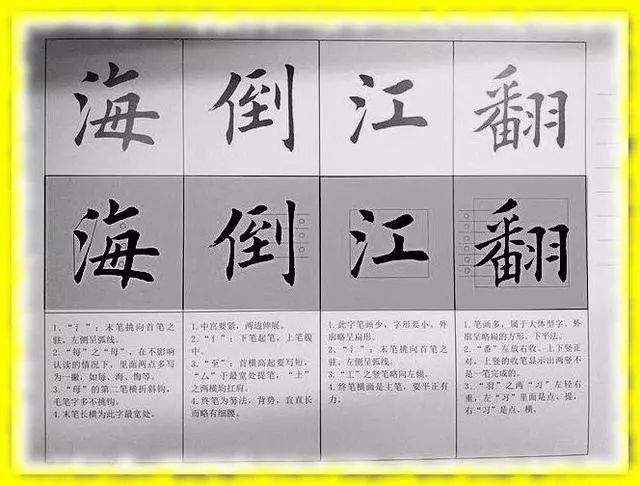 海 倒 江 翻
海 倒 江 翻
1.“氵”：末笔挑向首笔之
驻，左侧呈弧线。
2.“每”之“母”，在不影响
认读的情况下，里面两点多写
为一撇，如每、海、悔等。
3.“母”的第二笔横折斜钩，
毛笔字多不挑钩。
4.末笔长横为此字最宽处。
1.中宫要紧，两边伸展。
2.“亻”：下笔起笔，上笔腹
中。
3.“至”：首横高起要写短，
“厶”于最宽处提笔，“土”
之两横均扛肩。
4.终笔为努法，背势，宜直长
而略有细腰。
1.此字笔画少，字形要小。外
廓略呈扁形。
2.“氵”：末笔挑向首笔之
驻，左侧呈弧线。
3.“工”之竖笔略向左倾。
4.终笔横画是主笔，要平正有
力。
1.笔画多，属于大体型字。外
廓呈略扁的方形。下平法。
2.“番”左放右收。上下竖正
对。上竖的收笔显示出两竖不
是一笔完成的。
3.“羽”之两“习”左轻右
重，左“习”里面是点、提，
右“习”是点、横。